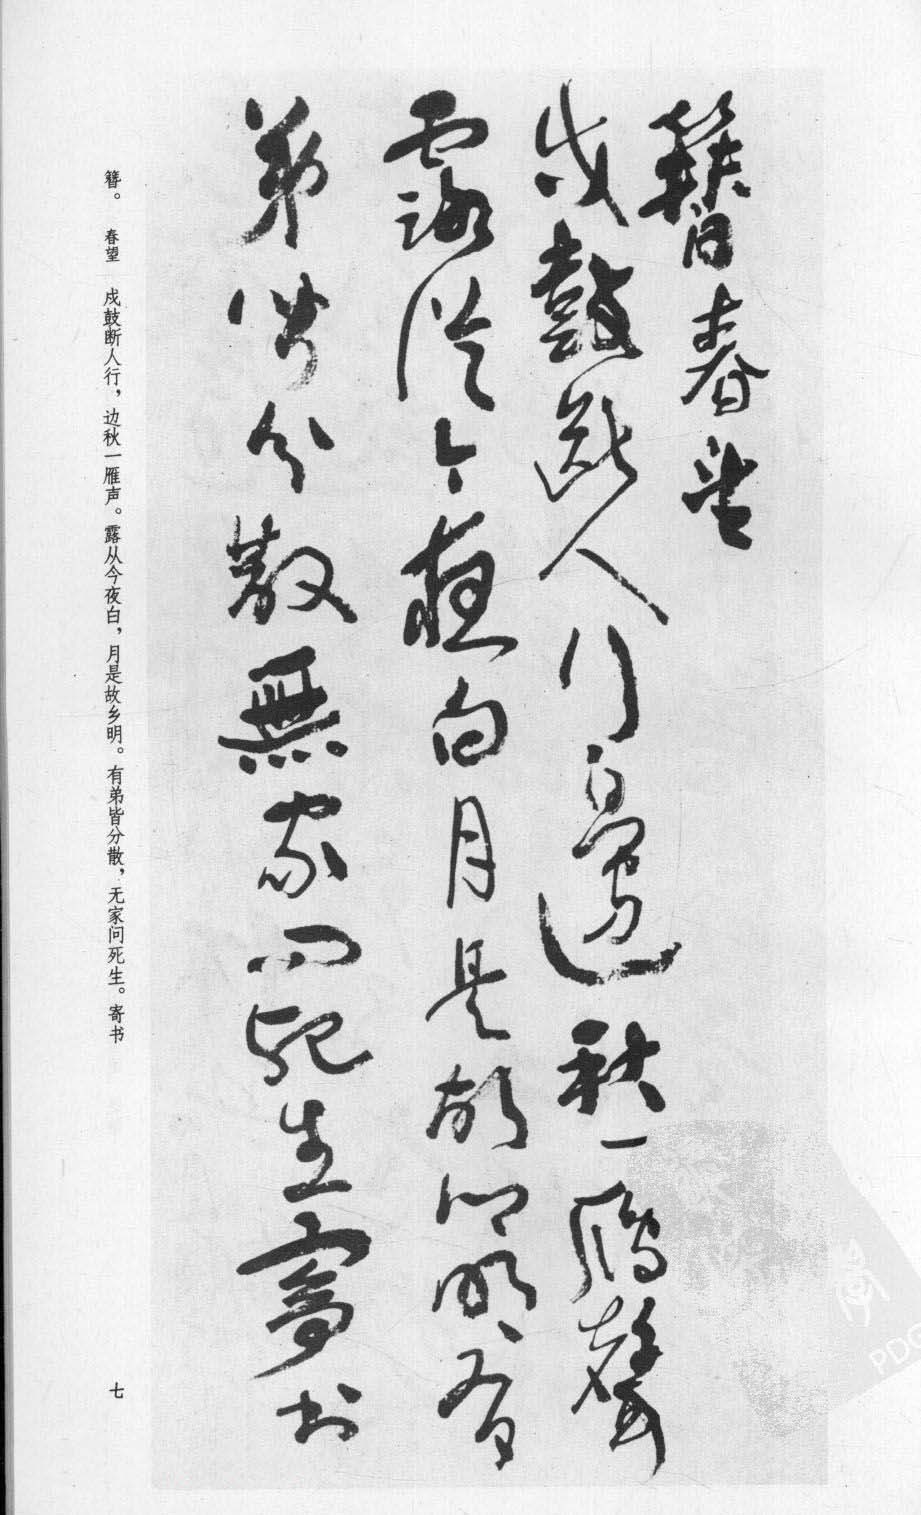 簪春望
戍鼓斷人行邊秋一鴈聲
露從今夜白月是故鄉明有
弟皆分散無家問死生寄书
簪。 春望 戍鼓断人行，边秋一雁声。露从今夜白，月是故乡明。有弟皆分散，无家问死生。寄书
七
PDG